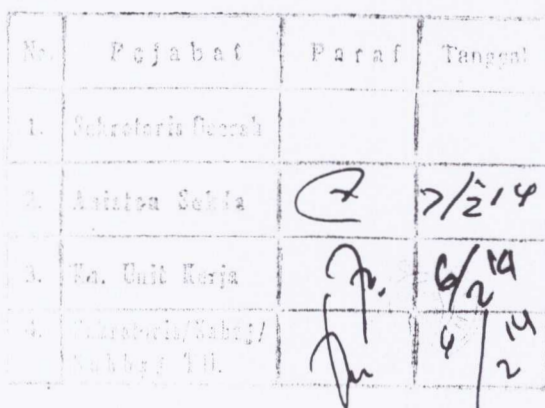 No. Pejabat Paraf Tanggal
1. Sekretaris Daerah
2. Asisten Sekda 7/2 14
3. Ka. Unit Kerja 6/2 14
4. Sekretaris/Kabag/ 4/2 14
Kabbag TU.